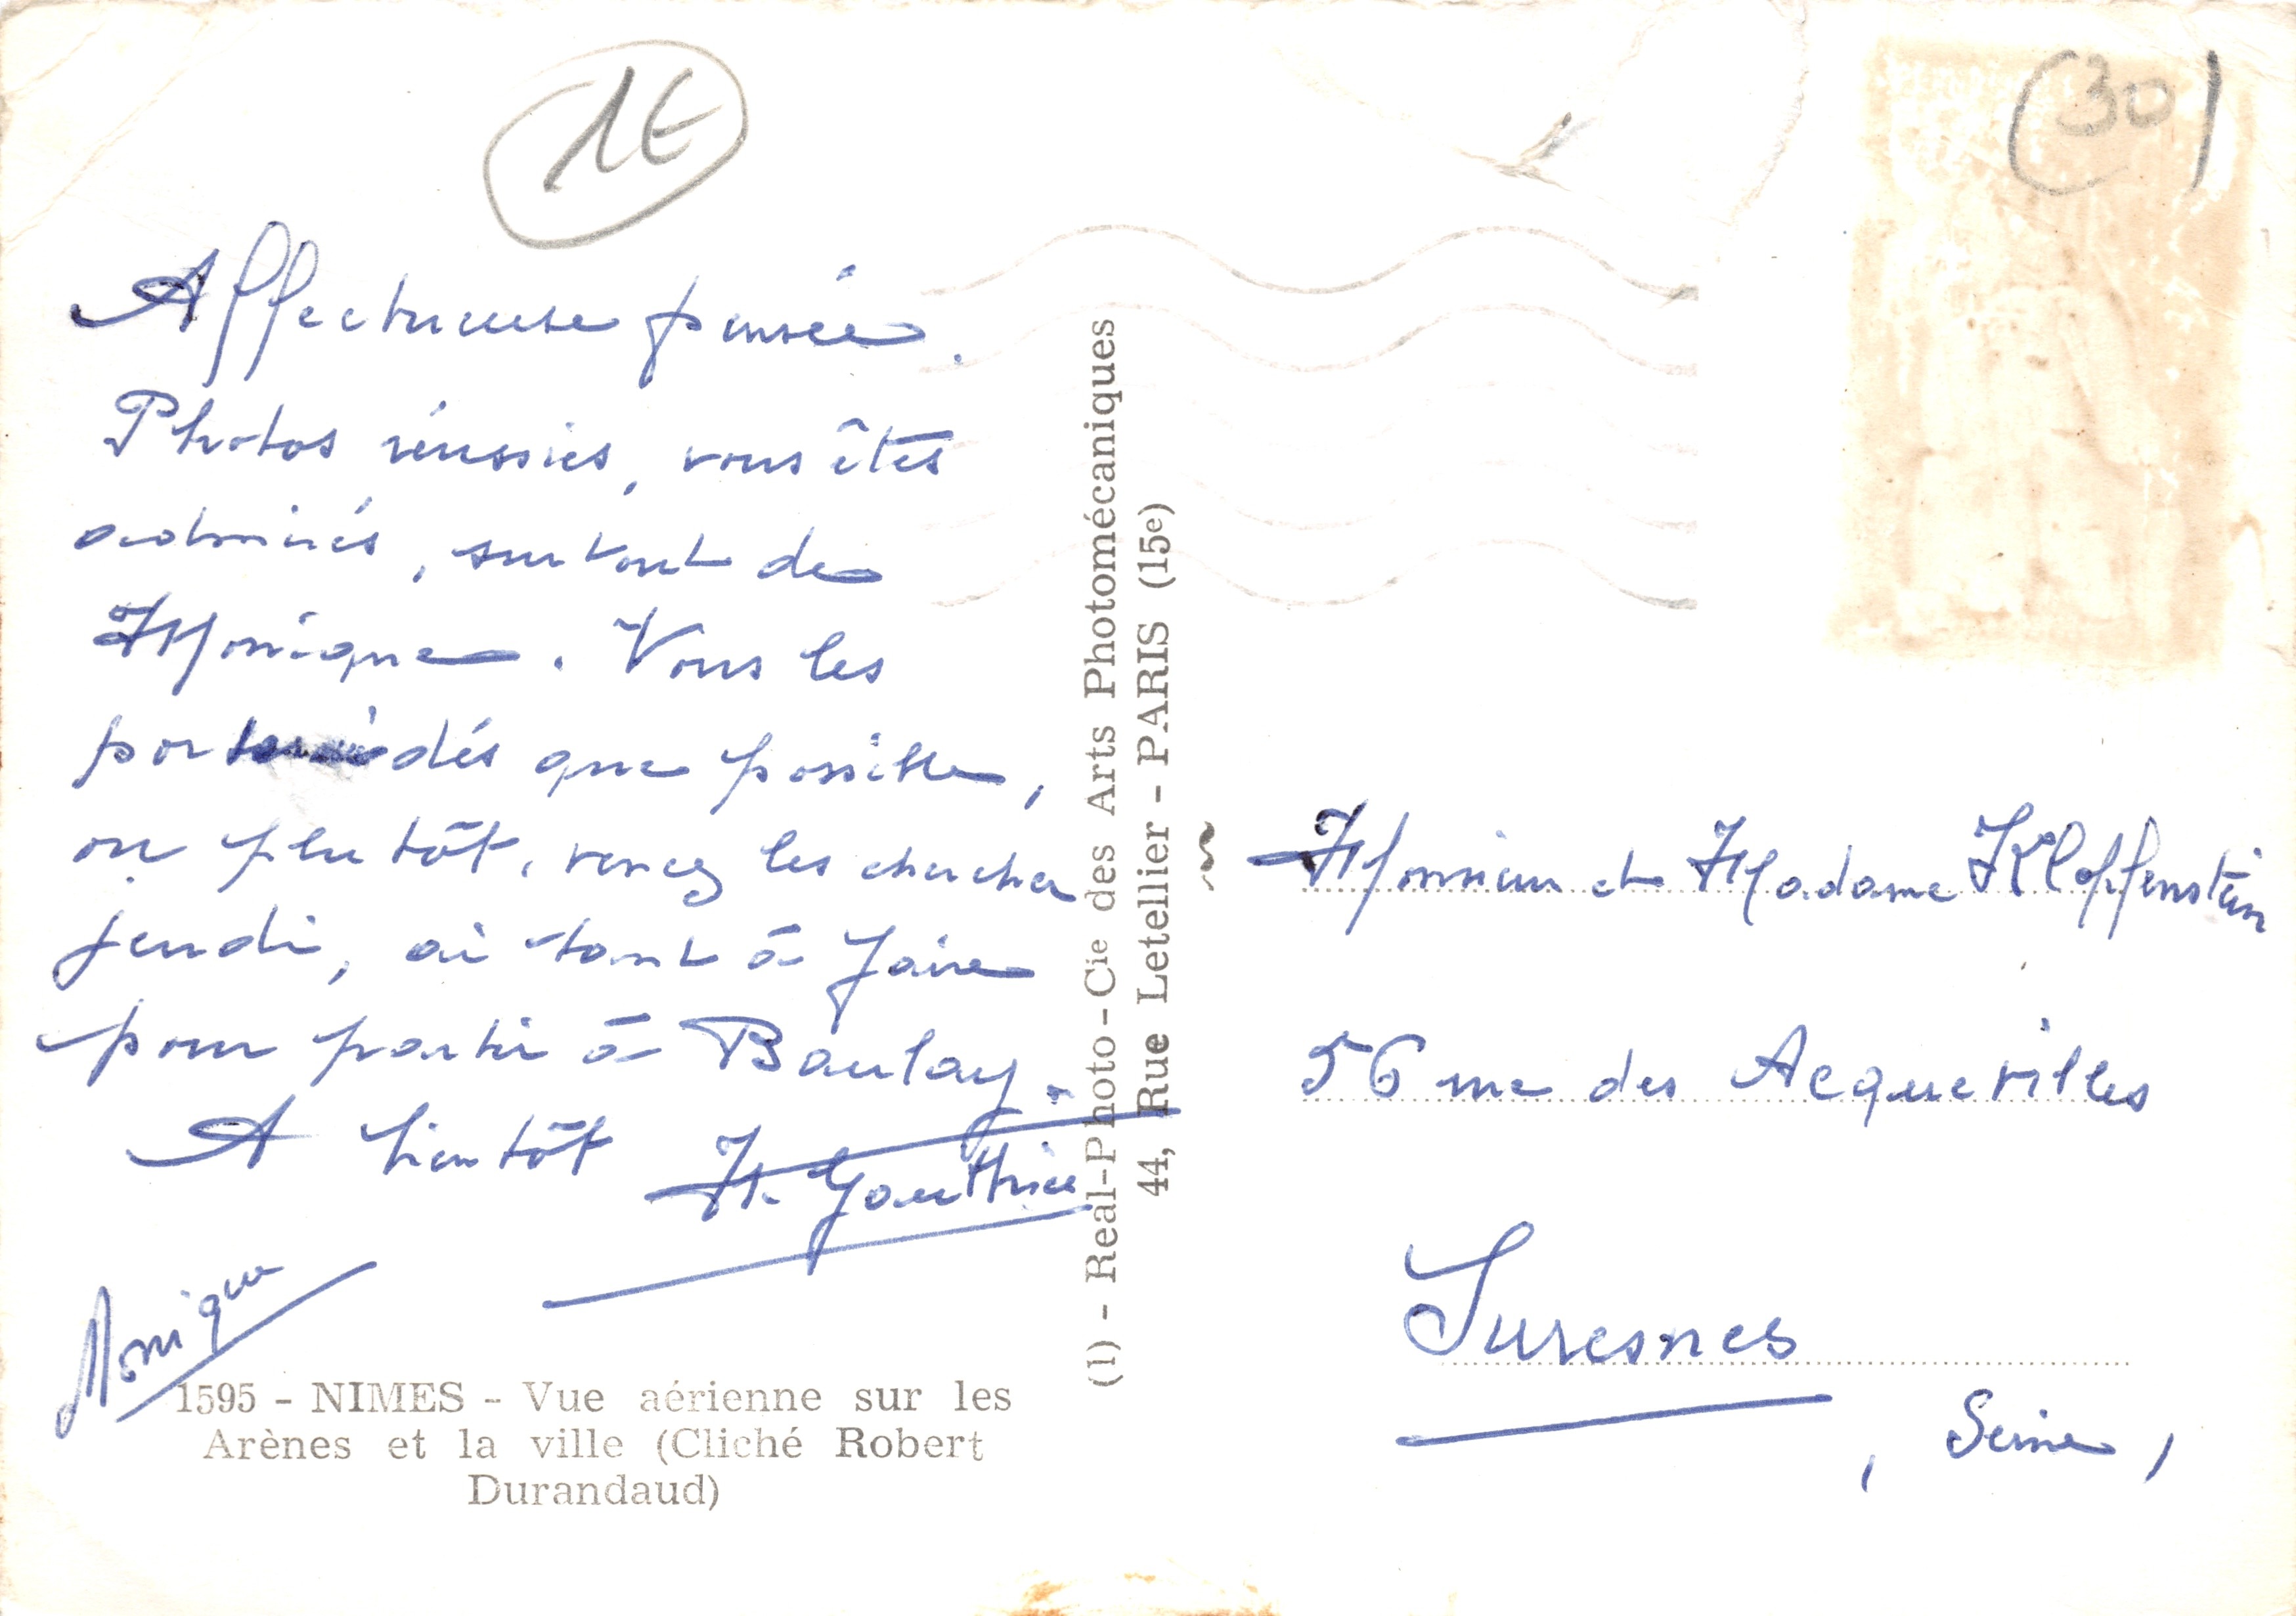 1€
(30)
Affectueuse pensée.
Photos réussies, vous êtes
admirés, surtout de
Monique. Vous les
dés que possible,
ou plutôt, venez les chercher
jeudi, ai tant à faire
pour partir à Baulay.
A bientôt H. Gauthier
Monique
1595 - NIMES - Vue aérienne sur les
Arènes et la ville (Cliché Robert
Durandaud)
(1) - Real-Photo - Cie des Arts Photomécaniques
44, Rue Letellier - PARIS (15e)
Monsieur et Madame Klopfenstein
56 rue des Acquevilles
Suresnes
, Seine,